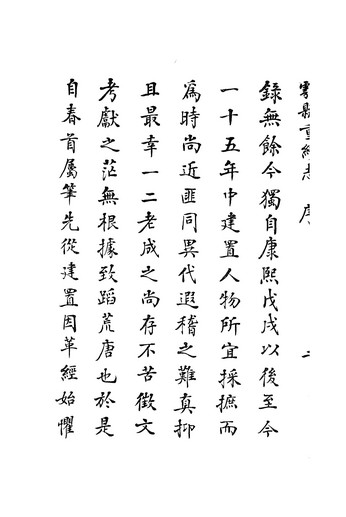 鄠縣重續志 序 二
錄無餘今獨自康熙戊戌以後至今
一十五年中建置人物所宜採摭而
爲時尚近匪同異代遐稽之難真抑
且最幸一二老成之尚存不苦徵文
考獻之茫無根據致蹈荒唐也於是
自春首屬筆先從建置因革經始懼